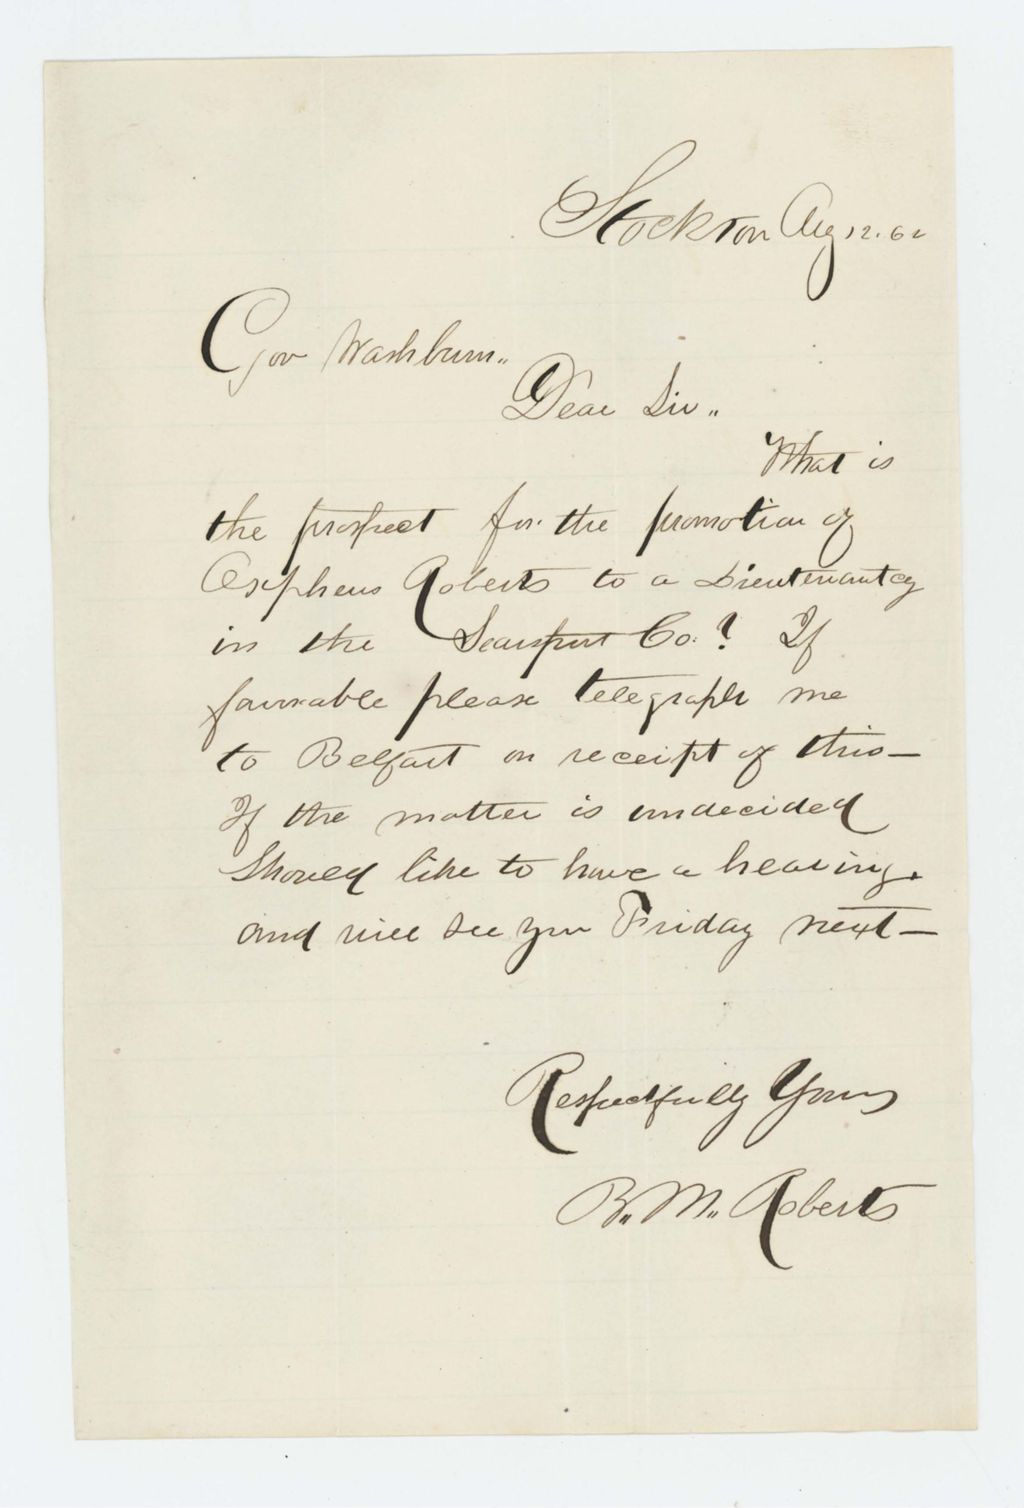 Stockton Aug 12. 62
Gov Washburn..
Dear Sir..
What is
the prospect for the promotion of
Orepheus Roberts to a Lieutenantcy
in the Searsport Co.? If
favorable please telegraph me
to Belfast on receipt of this—
If the matter is undecided
Should like to have a hearing.
and will see you Friday next—
Respectfully Yours
B.. M.. Roberts